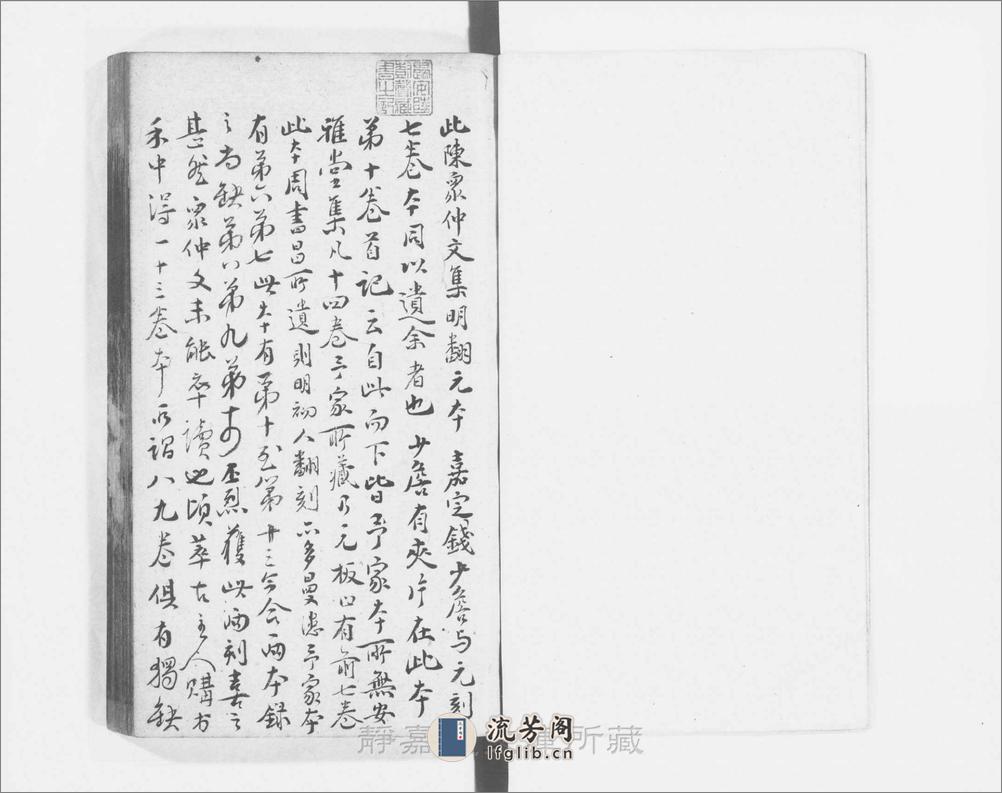 此陳眾仲文集明翻元本 嘉定錢少詹与元刻
七卷本同以遺余者也 少詹有夾片在此本
第十卷首記云自此而下皆予家本所無安
雅堂集凡十四卷予家所藏乃元板只有前七卷
此本周書昌所遺則明初人翻刻亦多曼漶予家本
有第六第七此本有第十至第十三今合兩本録
之尚缺第八第九第 丕烈獲此兩刻喜之
甚然眾仲文未能卒讀也頃萃古主人購书
禾中得一十三卷本所謂八九卷俱有獨缺
靜嘉 所藏
流芳阁
lfglib.cn